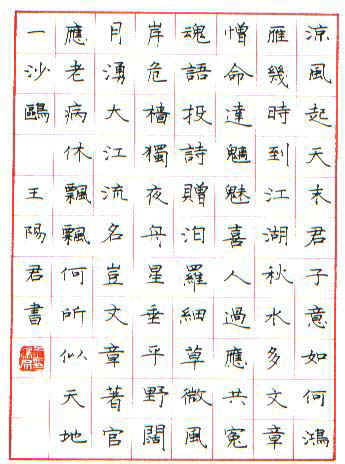 涼風起天末君子意如何鴻
雁幾時到江湖秋水多文章
憎命達魑魅喜人過應共冤
魂語投詩贈汨羅細草微風
岸危檣獨夜舟星垂平野闊
月湧大江流名豈文章著官
應老病休飄飄何所似天地
一沙鷗 王陽君書